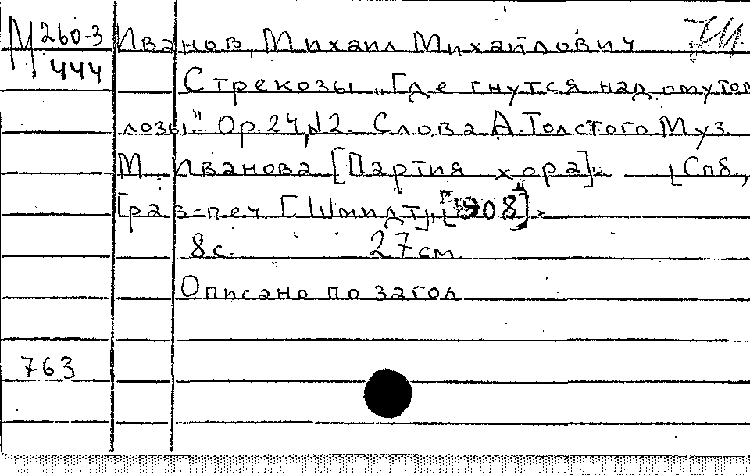 М 260-3 Иванов, Михаил Михайлович
444 Стрекозы „Где гнутся над омутом
лозы." Ор.24, №2. Слова А.Толстого Муз.
М. Иванова [Партия хора]. [Спб,
Граз-печ Г. Шмидт], [1908].
8 с. 27 см.
Описано по загол
763